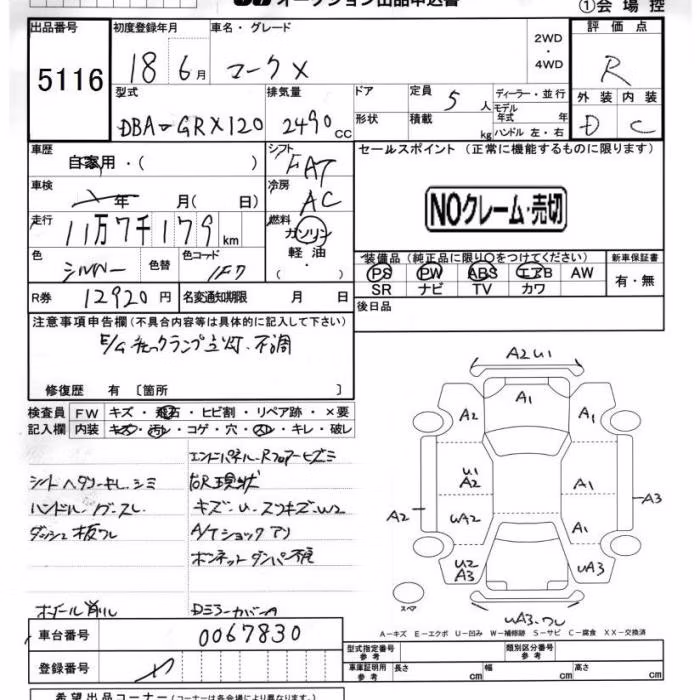 オークション出品申込書 ①会場控
出品番号 初度登録年月 車名・グレード 評価点
5116 18 6月 マークX 2WD・4WD R
型式 排気量 ドア 定員 5人 ディーラー・並行 外装 内装
DBA-GRX120 2490cc 形状 積載 kg モデル年式 年 ハンドル 左・右 D C
車歴 自家用・( ) シフト FAT セールスポイント (正常に機能するものに限ります)
車検 年 月( 日) 冷房 AC
NOクレーム・売切
走行 11万7千179km 燃料 ガソリン 軽油 ・( )
色 シルバー 色替 色コード 1F7
装備品 (純正品に限り○をつけてください) 新車保証書
PS PW ABS エアB AW 有・無
SR ナビ TV カワ
R券 12920円 名変通知期限 月 日 後日品
注意事項申告欄 (不具合内容等は具体的に記入して下さい)
E/Gチェックランプ点灯.不調
修復歴 有 〔箇所 〕
検査員 FW キズ・飛石・ヒビ割・リペア跡・×要
記入欄 内装 キズ・汚レ・コゲ・穴・スレ・キレ・破レ
エンドパネル.Rフロアーヒズミ
シートヘタリ キレ.シミ 現状
ハンドル スレ キズ.U.スリキズ.W2
ダッシュ板ワレ A/Tショックアリ
ボンネットダンパー不良
ホイール削リ Dミラーカバー
A2U1
A2 A1 A1
U1 A2 A1
A2 UA2 A1 A3
U2 A3 UA3
スペア UA3.ワレ
A-キズ E-エクボ U-凹み W-補修跡 S-サビ C-腐食 XX-交換済
車台番号 0067830
登録番号
型式指定番号 参考 類別区分番号 参考
車庫証明用 参考 長さ cm 幅 cm 高さ cm
希望出品コーナー (コーナーは各会場により異なります)